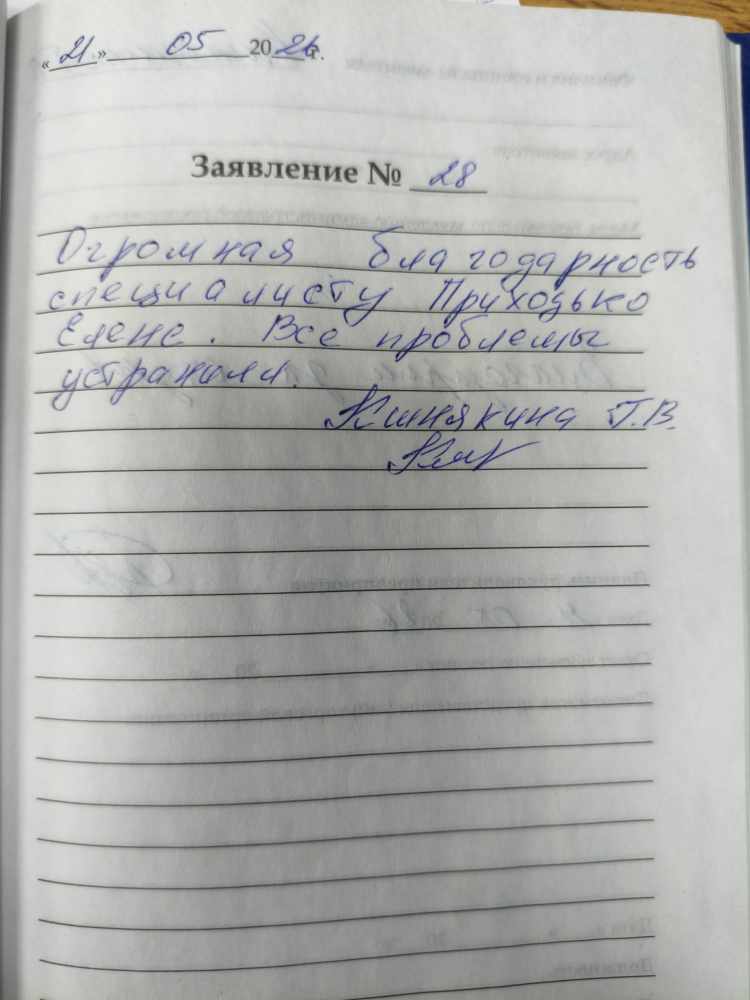 «21» 05 2026 г.
Заявление № 28
Огромная благодарность
специалисту Приходько
Елене. Все проблемы
устранили.
Кинякина Г.В.